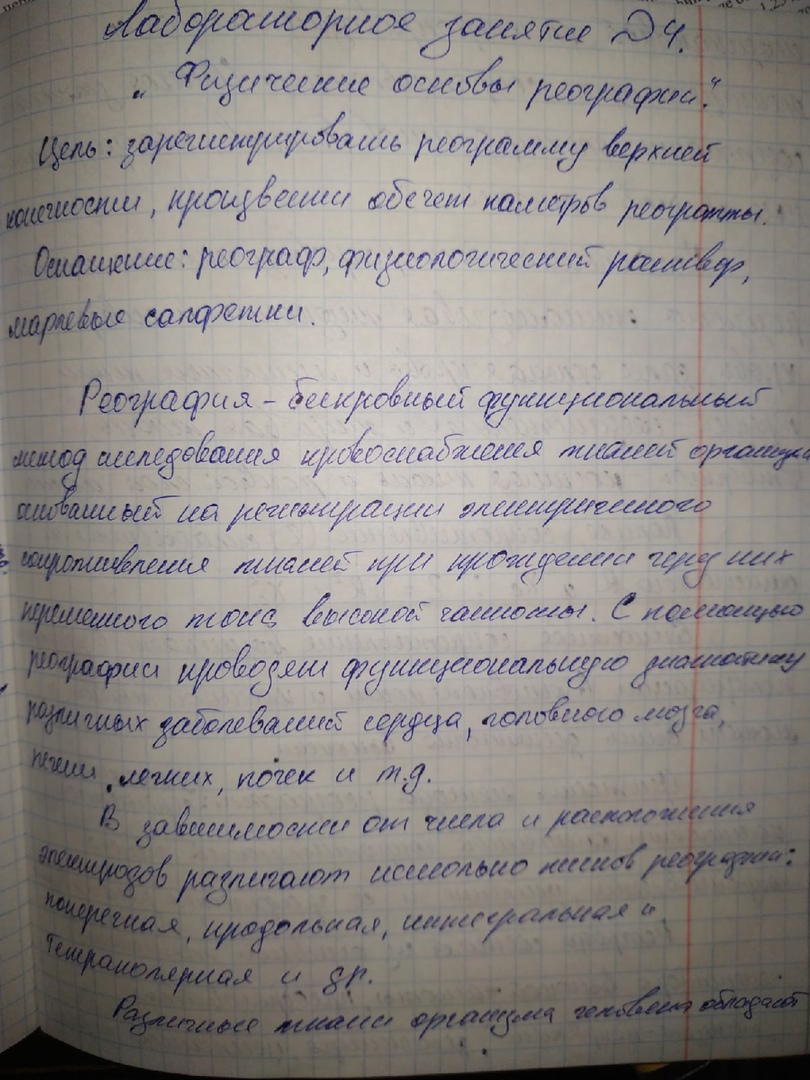 Лабораторное занятие Д4.
„Физические основы реографии."
Цель: зарегистрировать реограмму верхней
конечности, произвести обсчет паметров реограммы.
Оснащение: реограф, физиологический раствор,
марлевые салфетки.
Реография - бескровный функциональный
метод исследования кровоснабжения тканей организма
основанный на регистрации электрического
сопротивления тканей при прождении через них
переменного тока высокой частоты. С помощью
реографии проводят функциональную диагностику
различных заболеваний сердца, головного мозга,
печени, легких, почек и т.д.
В зависимости от числа и расположения
электродов различают несколько типов реографии:
поперечная, продольная, интегральная и
тетраполярная и др.
Различные ткани организма человека обладают